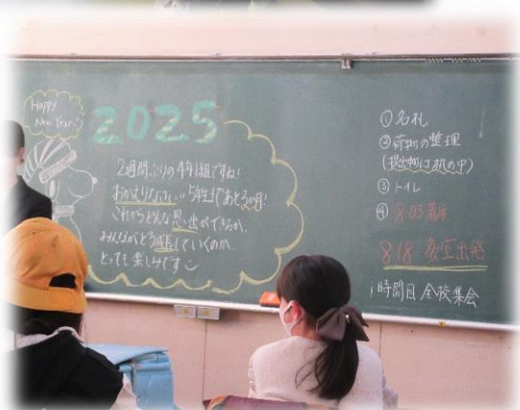 Happy
New Year!
2025
2週間ぶりの4年1組ですね!
おかえりなさい。5年生まであと3か月!
これからどんな思い出ができるか、
みんながどう成長していくのか、
とっても楽しみです
①名札
②荷物の整理
(提出物は机の中)
③トイレ
④8:05着席
8:18 教室出発
1時間目 全校集会